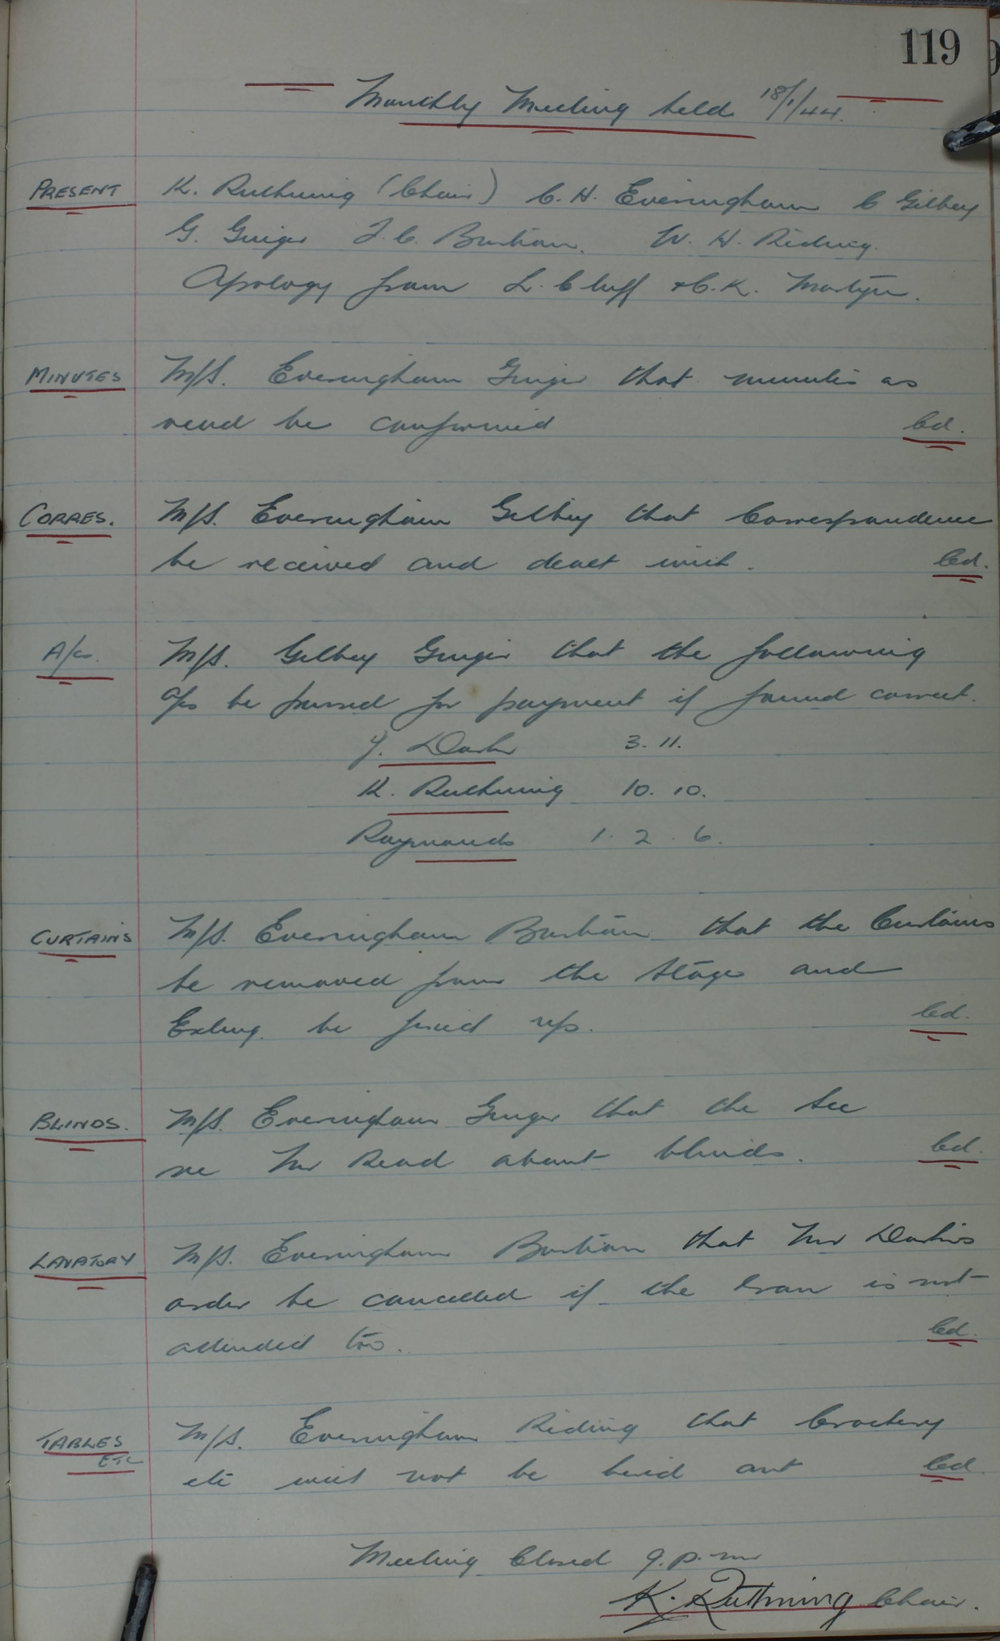 119
Monthly Meeting held 18/1/44.
PRESENT K. Ruthning (Chair) C. H. Everingham C Gilbey
G. Ginger J. C. Bastian. W. H. Riding.
Apology from L. Cluff & C. K. Martyn.
MINUTES M/S. Everingham Ginger that minutes as
read be confirmed Cd.
CORRES. M/S. Everingham Gilbey that Correspondence
be received and dealt with. Cd.
A/cs. M/S. Gilbey Ginger that the following
a/cs be passed for payment if found correct.
J. 3. 11.
K. Ruthning 10. 10.
Raymonds 1. 2. 6.
CURTAINS M/S. Everingham Bastian that the Curtains
be removed from the Stage and
be up. Cd.
BLINDS. M/S. Everingham Ginger that the Sec
see Mr Read about blinds. Cd.
LAVATORY M/S. Everingham Bastian that Mr
order be cancelled if the is not
attended too. Cd.
TABLES ETC M/S. Everingham Riding that Crockery
etc will not be hired out Cd.
Meeting Closed 9. p. m
K. Ruthning Chair.